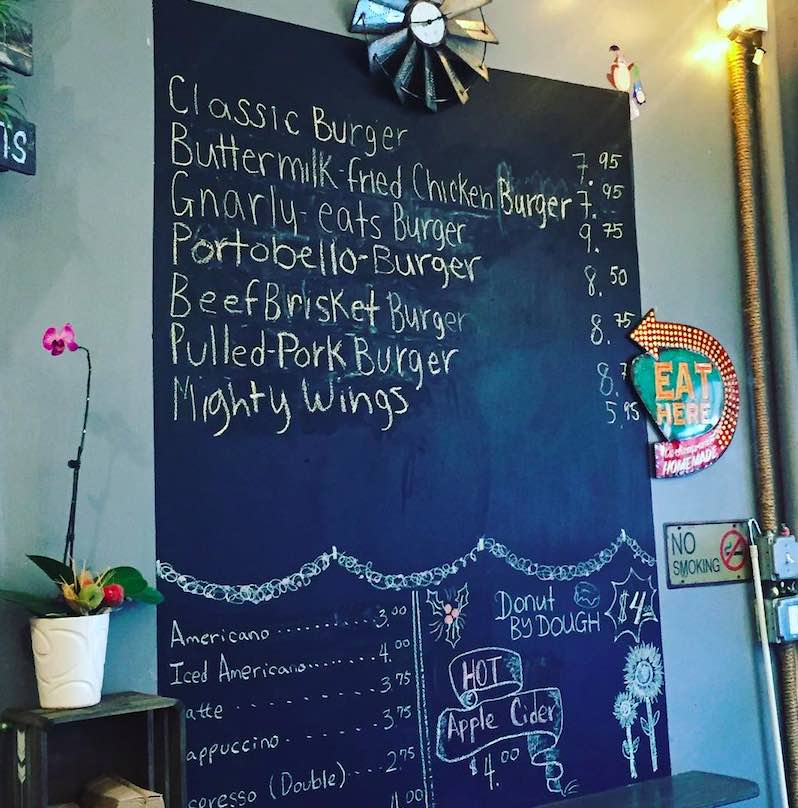 Classic Burger 7.95
Buttermilk-fried Chicken Burger 7.95
Gnarly-eats Burger 9.75
Portobello-Burger 8.50
Beef Brisket Burger 8.75
Pulled-Pork Burger 8.7
Mighty Wings 5.95
EAT
HERE
HOMEMADE
NO
SMOKING
Americano ........... 3.00
Iced Americano........ 4.00
atte 3.75
appuccino 3.75
spresso (Double) 2.75
Donut
BY DOUGH
$4
HOT
Apple Cider
$4.00